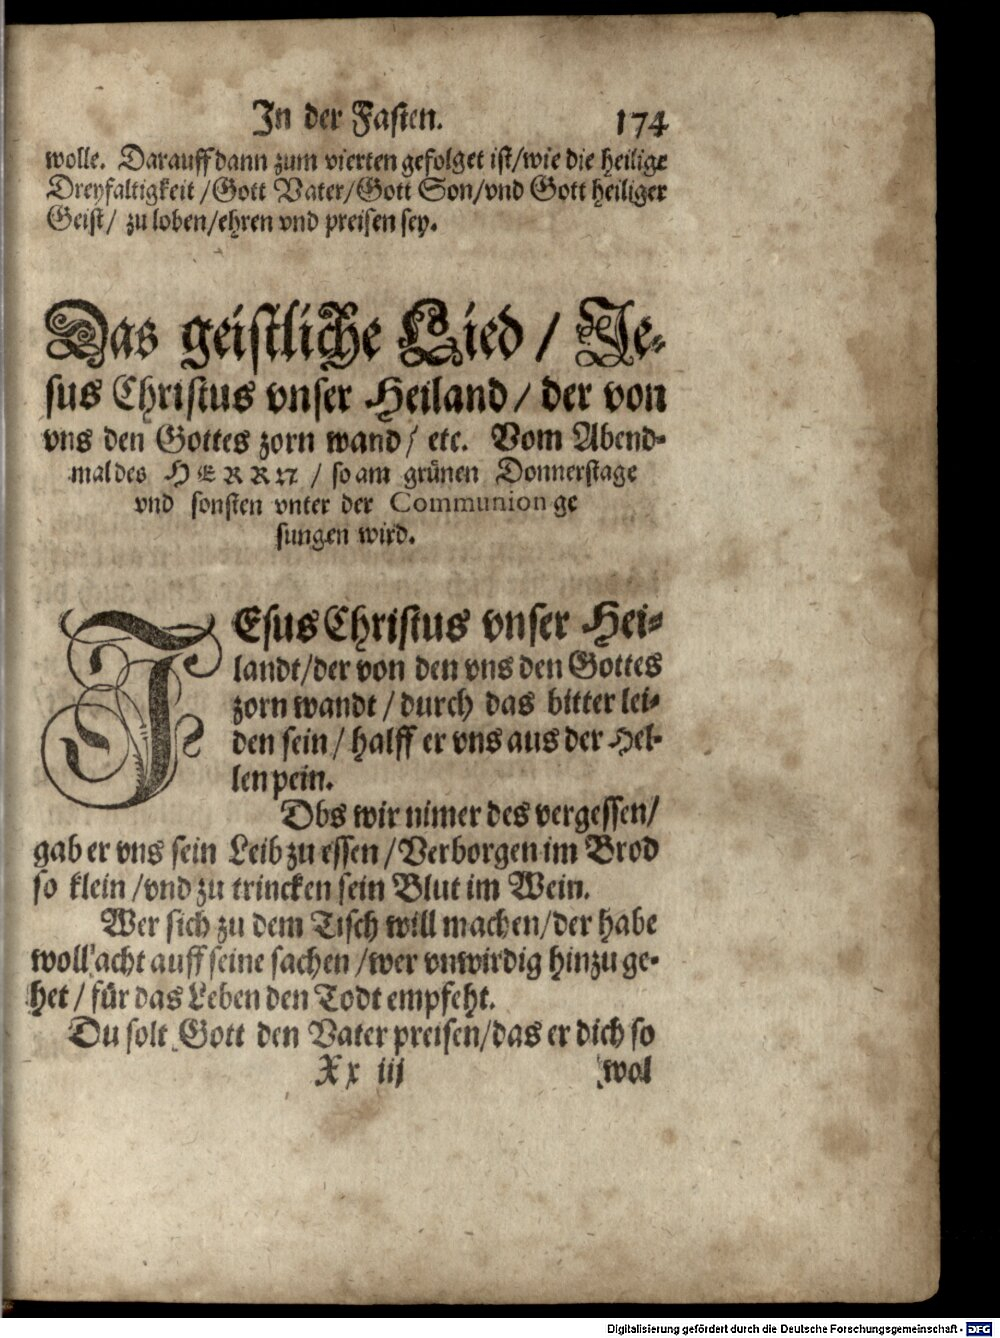 In der Fasten. 174
wolle. Darauff dann zum vierten gefolget ist/wie die heilige
Dreyfaltigkeit/Gott Vater/Gott Son/vnd Gott heiliger
Geist/ zu loben/ehren vnd preisen sey.
Das geistliche Lied/ Je-
sus Christus vnser Heiland/ der von
vns den Gottes zorn wand/ etc. Vom Abend-
mal des HERRN/ so am grünen Donnerstage
vnd sonsten vnter der Communion ge
sungen wird.
JEsus Christus vnser Hei-
landt/der von den vns den Gottes
zorn wandt/durch das bitter lei-
den sein/ halff er vns aus der Hel-
len pein.
Obs wir nimer des vergessen/
gab er vns sein Leib zu essen/Verborgen im Brod
so klein/vnd zu trincken sein Blut im Wein.
Wer sich zu dem Tisch will machen/der habe
woll acht auff seine sachen/wer vnwirdig hinzu ge-
het/ für das Leben den Todt empfeht.
Du solt Gott den Vater preisen/das er dich so
Xx iij wol
Digitalisierung gefördert durch die Deutsche Forschungsgemeinschaft - DFG